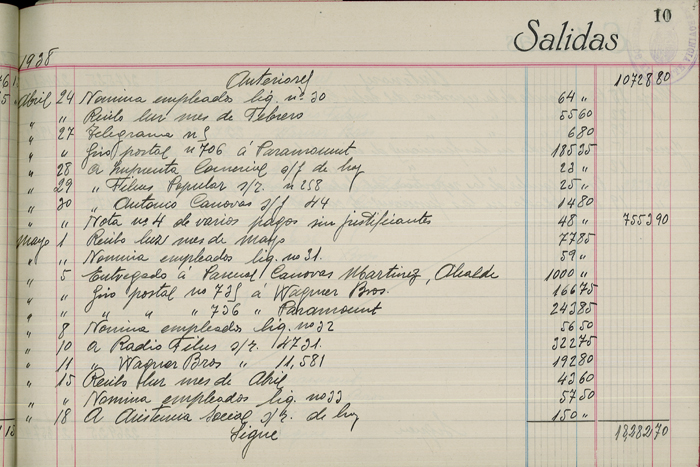 10
Salidas
1938
Anteriores 10728 80
Abril 24 Nomina empleados liq. nº 30 64 "
" " Recibo luz mes de Febrero 55 60
" 27 Telegrama nº 6 80
" " Giro postal nº 706 á Paramount 185 35
" 28 a Imprenta Comercial s/f de hoy 23 "
" 29 " Films Popular s/r. nº 258 25 "
" 30 " Antonio Canovas s/f 44 14 80
" " Nota nº 4 de varios pagos sin justificantes 48 " 7553 90
Mayo 1 Recibo luz mes de mayo 77 85
" " Nomina empleados liq. nº 31. 59 "
" 5 Entregado á Canovas Martinez, Alcalde 1000 "
" " Giro postal nº 735 á Wagner Bros. 166 75
" " " " " 736 " Paramount 243 85
" 8 Nomina empleados liq. nº 32 56 50
" 10 a Radio Films s/r. 14731. 322 75
" 11 " Wagner Bros " 11,581 192 80
" 15 Recibo luz mes de Abril 43 60
" " Nomina empleados liq. nº 33 57 50
" 18 A Asistencia Social s/r. de hoy 150 "
Sigue 13,282 70